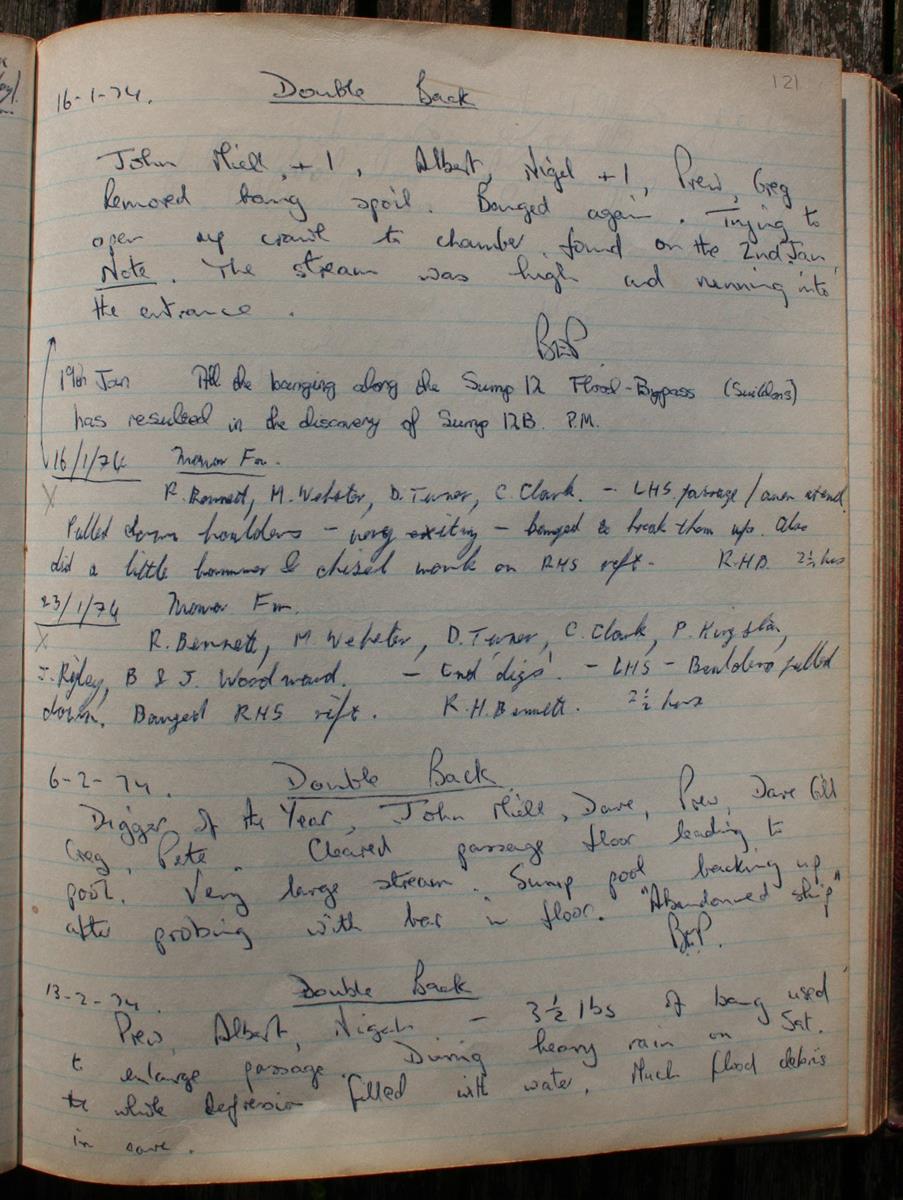 121
16-1-74. Double Back
John Miell, +1, Albert, Nigel +1, Prew, Greg
Removed bang spoil. Banged again. Trying to
open up crawl to chamber found on the 2nd Jan
Note. The stream was high and running into
the entrance.
BEP
19th Jan All the banging along the Sump 12 Flood-Bypass (Swildons)
has resulted in the discovery of Sump 12B. P.M.
16/1/74 Manor Fm.
X R. Bennett, M. Webster, D. Turner, C. Clark. - LHS. passage /
Pulled down boulders - very exciting - banged to break them up. Also
did a little hammer & chisel work on RHS rift - R.H.B. 2½ hrs
23/1/74 Manor Fm.
X R. Bennett, M. Webster, D. Turner, C. Clark, P. Kingston,
J. Rigley, B & J. Woodward. - 'End digs'. - LHS - Boulders pulled
down. Banged RHS rift. R.H. Bennett. 2½ hrs
6-2-74. Double Back
Digger of the Year, John Miell, Dave, Prew, Dave Gill
Greg, Pete. Cleared passage floor leading to
pool. Very large stream. Sump pool backing up
after probing with bar in floor. "Abandonned ship"
BEP.
13-2-74. Double Back
Prew, Albert, Nigel - 3½ lbs of bang used
to enlarge passage. During heavy rain on Sat.
the whole depression filled with water. Much flood debris
in cave.